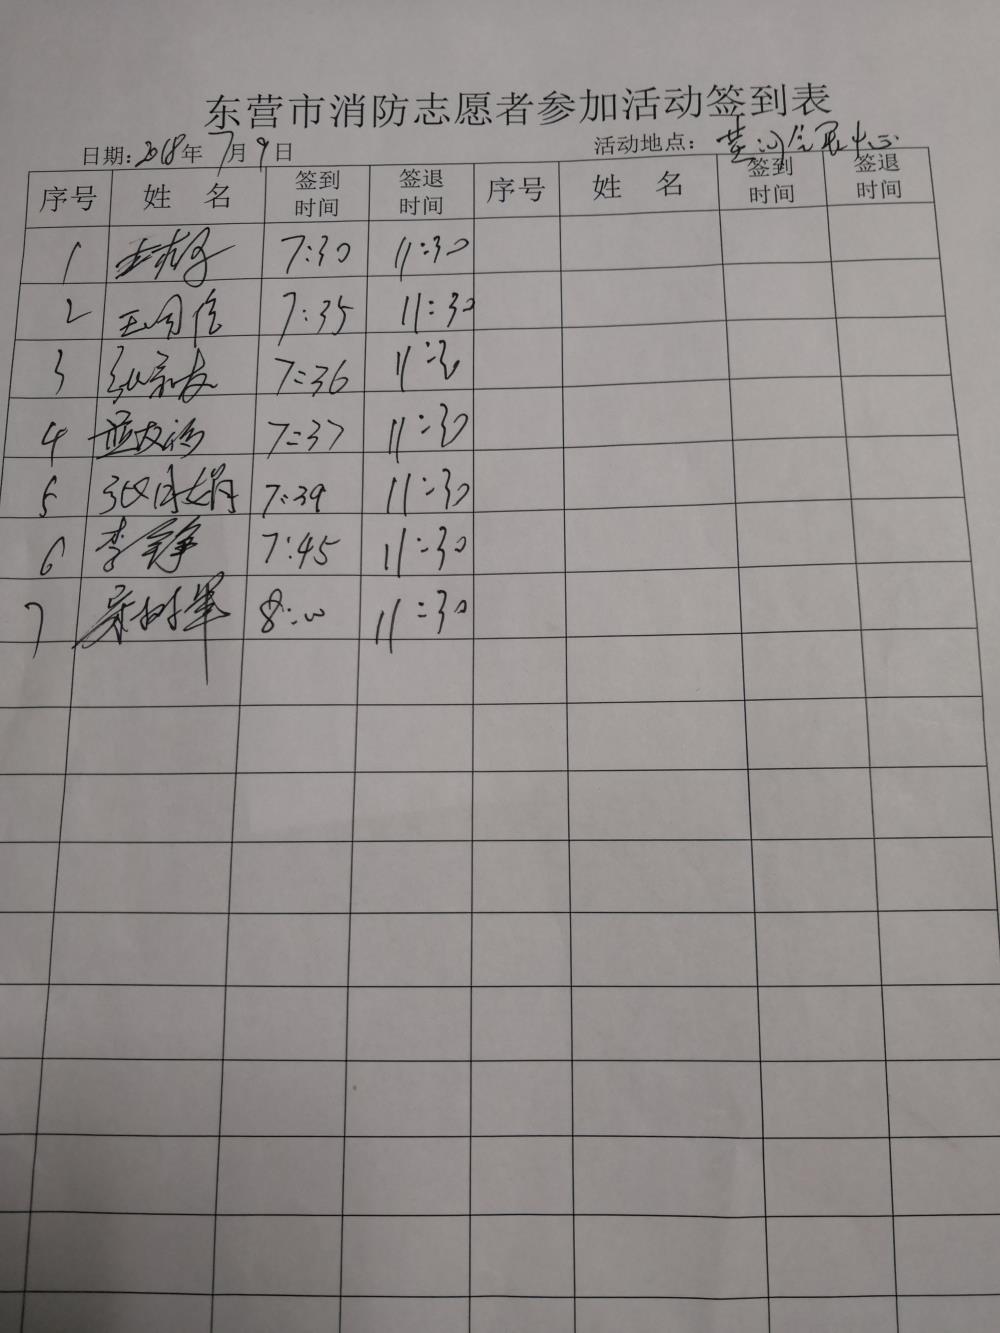 东营市消防志愿者参加活动签到表
日期：2018年7月9日 活动地点：黄河会展中心
序号 姓 名 签到时间 签退时间 序号 姓 名 签到时间 签退时间
1 7:30 11:30
2 王同信 7:35 11:30
3 7:36 11:30
4 7:37 11:30
5 张月娟 7:39 11:30
6 李铮 7:45 11:30
7 8:00 11:30